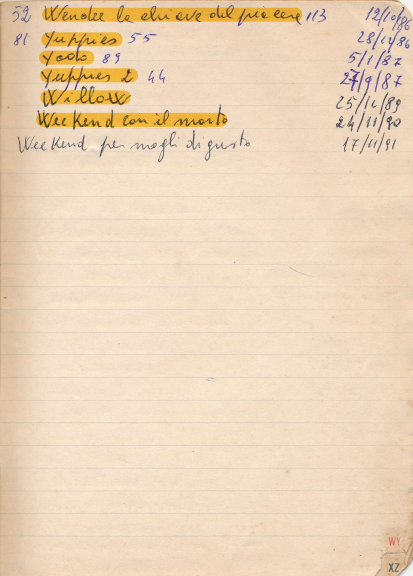 52 Wendee la chiave del piacere 113 12/10/86
81 Yuppies 55 28/11/86
Yado 89 5/1/87
Yuppies 2 44 27/9/87
Willow 25/11/89
Weekend con il morto 24/11/90
Weekend per mogli di gusto 17/11/91
WY
XZ